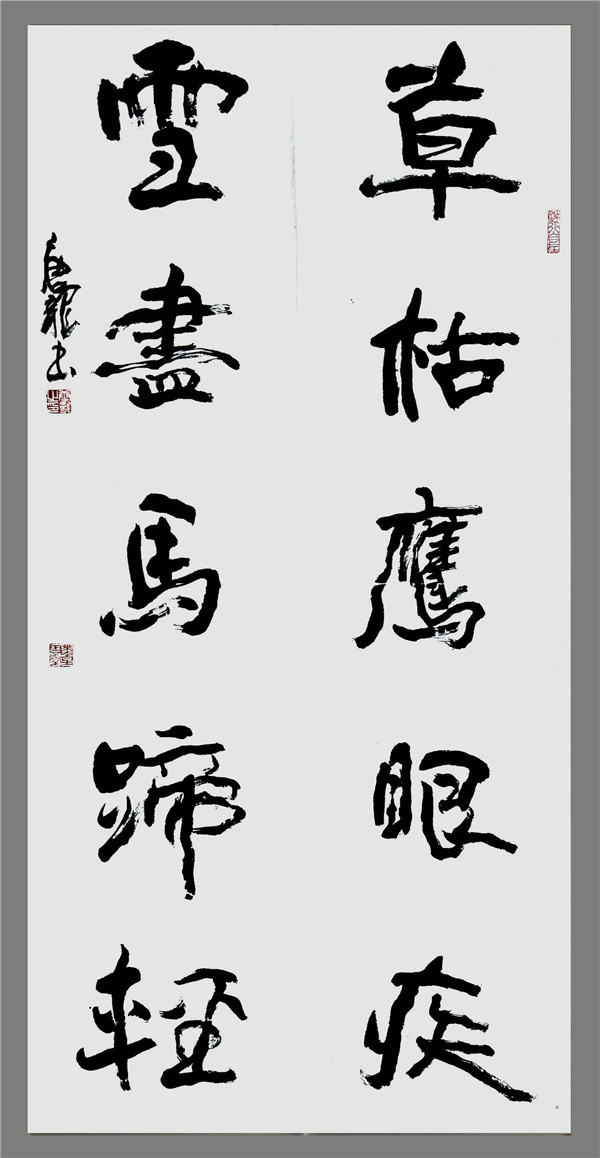 草枯鷹眼疾
雪盡馬蹄輕